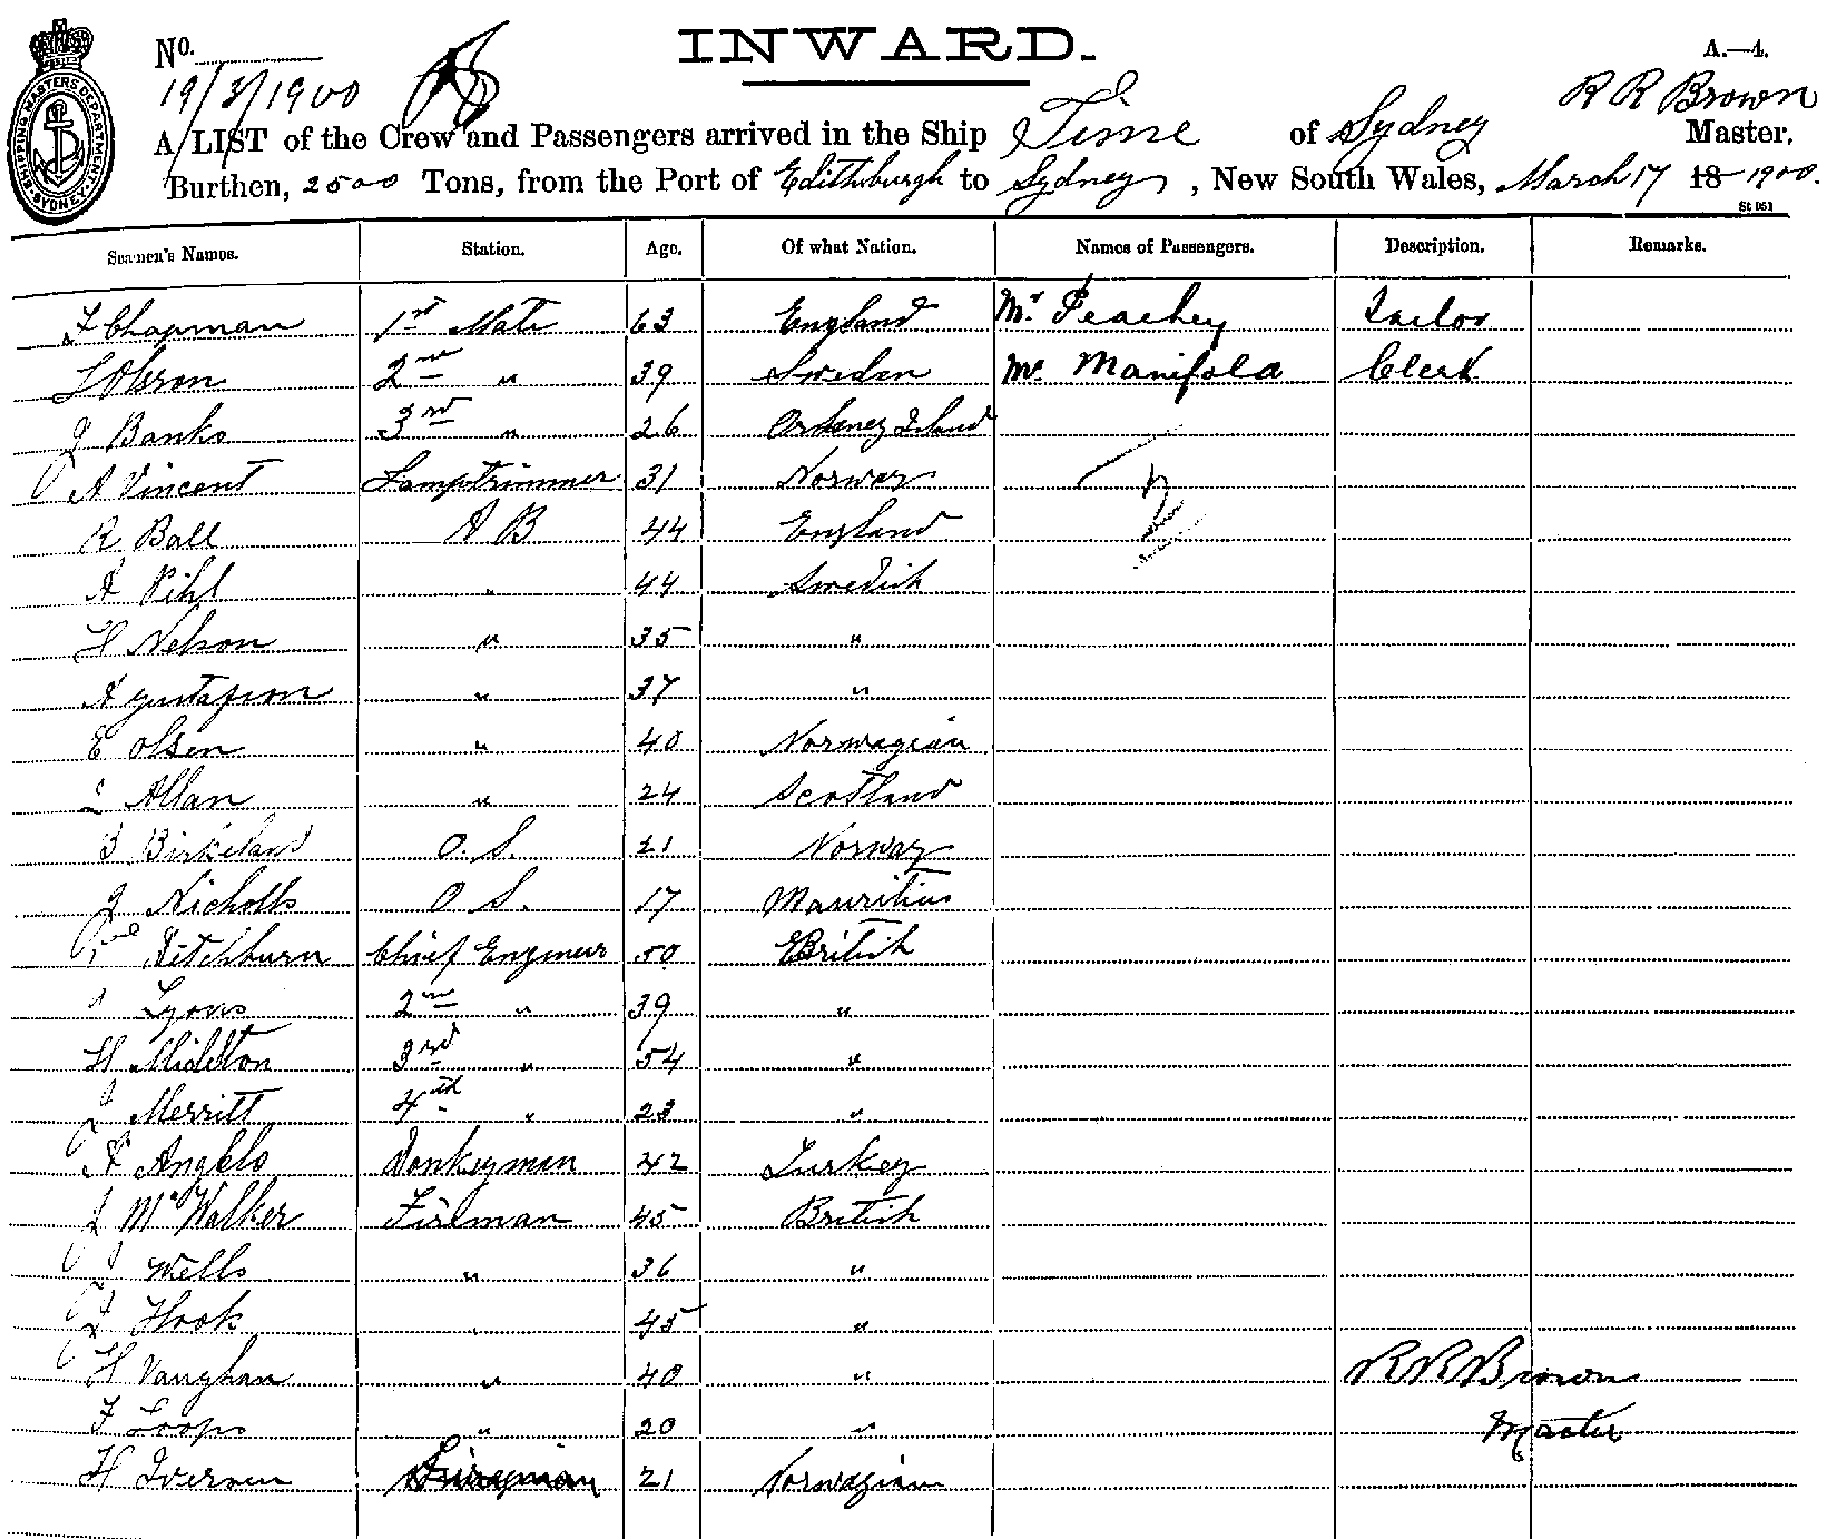 No.
INWARD.
A.—4.
19/3/1900
R R Brown
A LIST of the Crew and Passengers arrived in the Ship Time of Sydney Master.
Burthen, 2500 Tons, from the Port of Edithburgh to Sydney, New South Wales, March 17 18 1900.
St 051
SHIPPING MASTERS DEPARTMENT. SYDNEY.
Seamen's Names. Station. Age. Of what Nation. Names of Passengers. Description. Remarks.
F Chapman 1st Mate 63 England Mr Peachey Tailor
L Olsson 2nd " 39 Sweden Mr Manifold Clerk
J Banks 3rd " 26 Orkney Island
A Vincent Lamptrimmer 31 Norway
R Ball A B 44 England
A Pihl " 44 Swedish
H Nelson " 35 "
A Gustafson " 37 "
E Olsen " 40 Norwegian
Allan " 24 Scotland
Birkeland O. S. 21 Norway
J Nicholls O S. 17 Mauritius
Ditchburn Chief Engineer 50 British
Lyons 2nd " 39 "
H Middleton 3rd " 54 "
J Merritt 4th " 23 "
A Angelo Donkeyman 42 Turkey
J McWalker Fireman 45 British
J Wells " 36 "
Hook " 45 "
H Vaughan " 40 " R R Brown
F Loops " 20 " Master
H Iversen 21 Norwegian